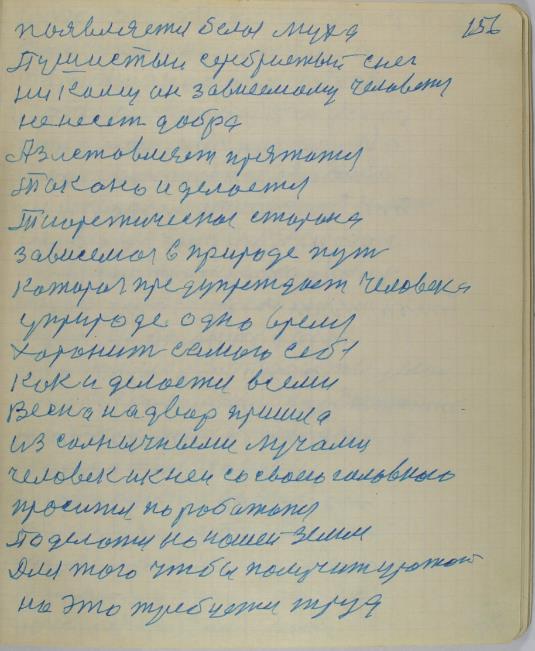 156
появляется белая муха
Пушистый серебристый снег
ни кому он зависемому человеку
не несет добра
А заставляет прятатся
Так оно и делается
Тиоретическая сторона
зависемая в природе пут
которая предупреждает человека
у природе одно время
хоронит самого себя
Как и делается всеми
Весна на двор пришла
из солнычными лучами
человек ик ней со своею головною
просится поработатся
Поделатся на нашей Земли
Для того чтобы получит урожай
на это требуется труд